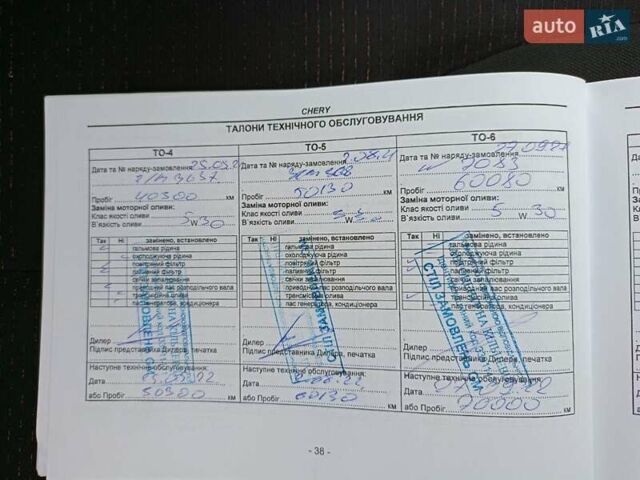 auto RIA.com
CHERY
ТАЛОНИ ТЕХНІЧНОГО ОБСЛУГОВУВАННЯ
ТО-4
Дата та № наряду-замовлення 25.03.2
3637
Пробіг 40300 км
Заміна моторної оливи:
Клас якості оливи
В`язкість оливи 5 W 30
Так Ні замінено, встановлено
гальмова рідина
охолоджуюча рідина
повітряний фільтр
паливний фільтр
свічки запалювання
привідний пас розподільного вала
трансмісійна олива
пас генератора, кондиціонера
Дилер
Підпис представника Дилера, печатка
Наступне технічне обслуговування:
Дата
або Пробіг 50300 км
ТО-5
Дата та № наряду-замовлення
Пробіг 50130 км
Заміна моторної оливи:
Клас якості оливи
В`язкість оливи W
Так Ні замінено, встановлено
гальмова рідина
охолоджуюча рідина
повітряний фільтр
паливний фільтр
свічки запалювання
привідний пас розподільного вала
трансмісійна олива
пас генератора, кондиціонера
СТІЛ ЗАМОВЛЕНЬ
Дилер
Підпис представника Дилера, печатка
Наступне технічне обслуговування:
Дата
або Пробіг 60130 км
ТО-6
Дата та № наряду-замовлення
7083
Пробіг 60080 км
Заміна моторної оливи:
Клас якості оливи
В`язкість оливи 5 W 30
Так Ні замінено, встановлено
гальмова рідина
охолоджуюча рідина
повітряний фільтр
паливний фільтр
свічки запалювання
привідний пас розподільного вала
трансмісійна олива
пас генератора, кондиціонера
СТІЛ ЗАМОВЛЕНЬ
Дилер
Підпис представника Дилера, печатка
Наступне технічне обслуговування:
Дата
або Пробіг 70000 км
- 38 -